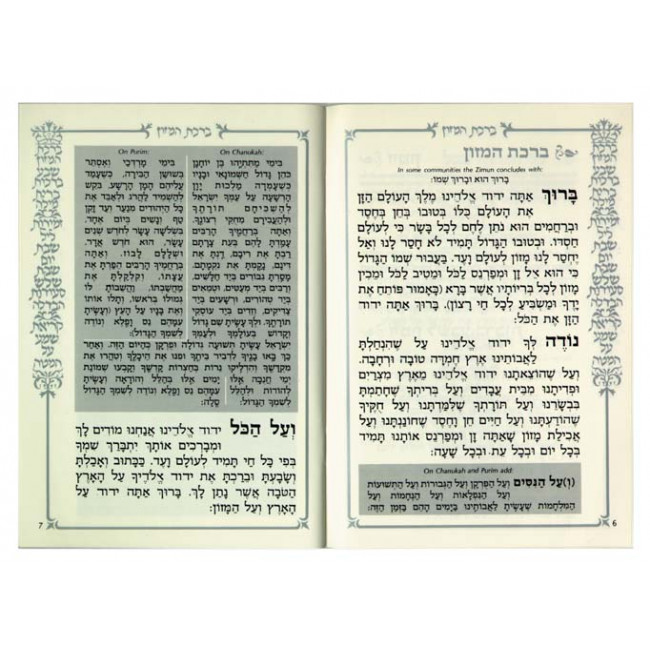 ברכת המזון
ברכת המזון
In some communities the Zimun concludes with:
ברוך הוא וברוך שמו:
ברוך אתה ידוד אלדינו מלך העולם הזן
את העולם כלו בטובו בחן בחסד
וברחמים הוא נתן לחם לכל בשר כי לעולם
חסדו. ובטובו הגדול תמיד לא חסר לנו ואל
יחסר לנו מזון לעולם ועד. בעבור שמו הגדול
כי הוא אל זן ומפרנס לכל ומטיב לכל ומכין
מזון לכל בריותיו אשר ברא (כאמור פותח את
ידך ומשביע לכל חי רצון). ברוך אתה ידוד
הזן את הכל:
נודה לך ידוד אלדינו על שהנחלת
לאבותינו ארץ חמדה טובה ורחבה.
ועל שהוצאתנו ידוד אלדינו מארץ מצרים
ופדיתנו מבית עבדים ועל בריתך שחתמת
בבשרנו ועל תורתך שלמדתנו ועל חקיך
שהודעתנו ועל חיים חן וחסד שחוננתנו ועל
אכילת מזון שאתה זן ומפרנס אותנו תמיד
בכל יום ובכל עת. ובכל שעה:
On Chanukah and Purim add:
(ו)על הנסים ועל הפרקן ועל הגבורות ועל התשועות
ועל הנפלאות ועל הנחמות ועל
המלחמות שעשית לאבותינו בימים ההם בזמן הזה:
6
ברכת המזון
On Chanukah:
בימי מתתיהו בן יוחנן
כהן גדול חשמונאי ובניו
כשעמדה מלכות יון
הרשעה על עמך ישראל
להשכיחם תורתך
ולהעבירם מחקי רצונך.
ואתה ברחמיך הרבים
עמדת להם בעת צרתם
רבת את ריבם, דנת את
דינם, נקמת את נקמתם.
מסרת גבורים ביד חלשים
ורבים ביד מעטים, וטמאים
ביד טהורים, ורשעים ביד
צדיקים, וזדים ביד עוסקי
תורתך. ולך עשית שם גדול
וקדוש בעולמך ולעמך
On Purim:
בימי מרדכי ואסתר
בשושן הבירה, כשעמד
עליהם המן הרשע. בקש
להשמיד להרג ולאבד את
כל היהודים מנער ועד זקן
טף ונשים ביום אחד,
בשלשה עשר לחדש שנים
עשר, הוא חדש אדר,
ושללם לבוז. ואתה
ברחמיך הרבים הפרת את
עצתו וקלקלת את
מחשבתו, והשבות לו
גמולו בראשו, ותלו אותו
ואת בניו על העץ (ועשית
עמהם נס ופלא ונודה
לשמך הגדול):
ישראל עשית תשועה גדולה ופרקן כהיום הזה. ואחר
כך באו בניך לדביר ביתך ופנו את היכלך וטהרו את
מקדשך והדליקו נרות בחצרות קדשך וקבעו שמונת
ימי חנכה אלו ימים אלו בהלל והודאה ועשית
עמהם נס ופלא ונודה לשמך הגדול
סלה:
ועל הכל ידוד אלדינו אנחנו מודים לך
ומברכים אותך יתברך שמך
בפי כל חי תמיד לעולם ועד. ככתוב ואכלת
ושבעת וברכת את ידוד אלדיך על הארץ
הטבה אשר נתן לך. ברוך אתה ידוד על
הארץ ועל המזון:
7